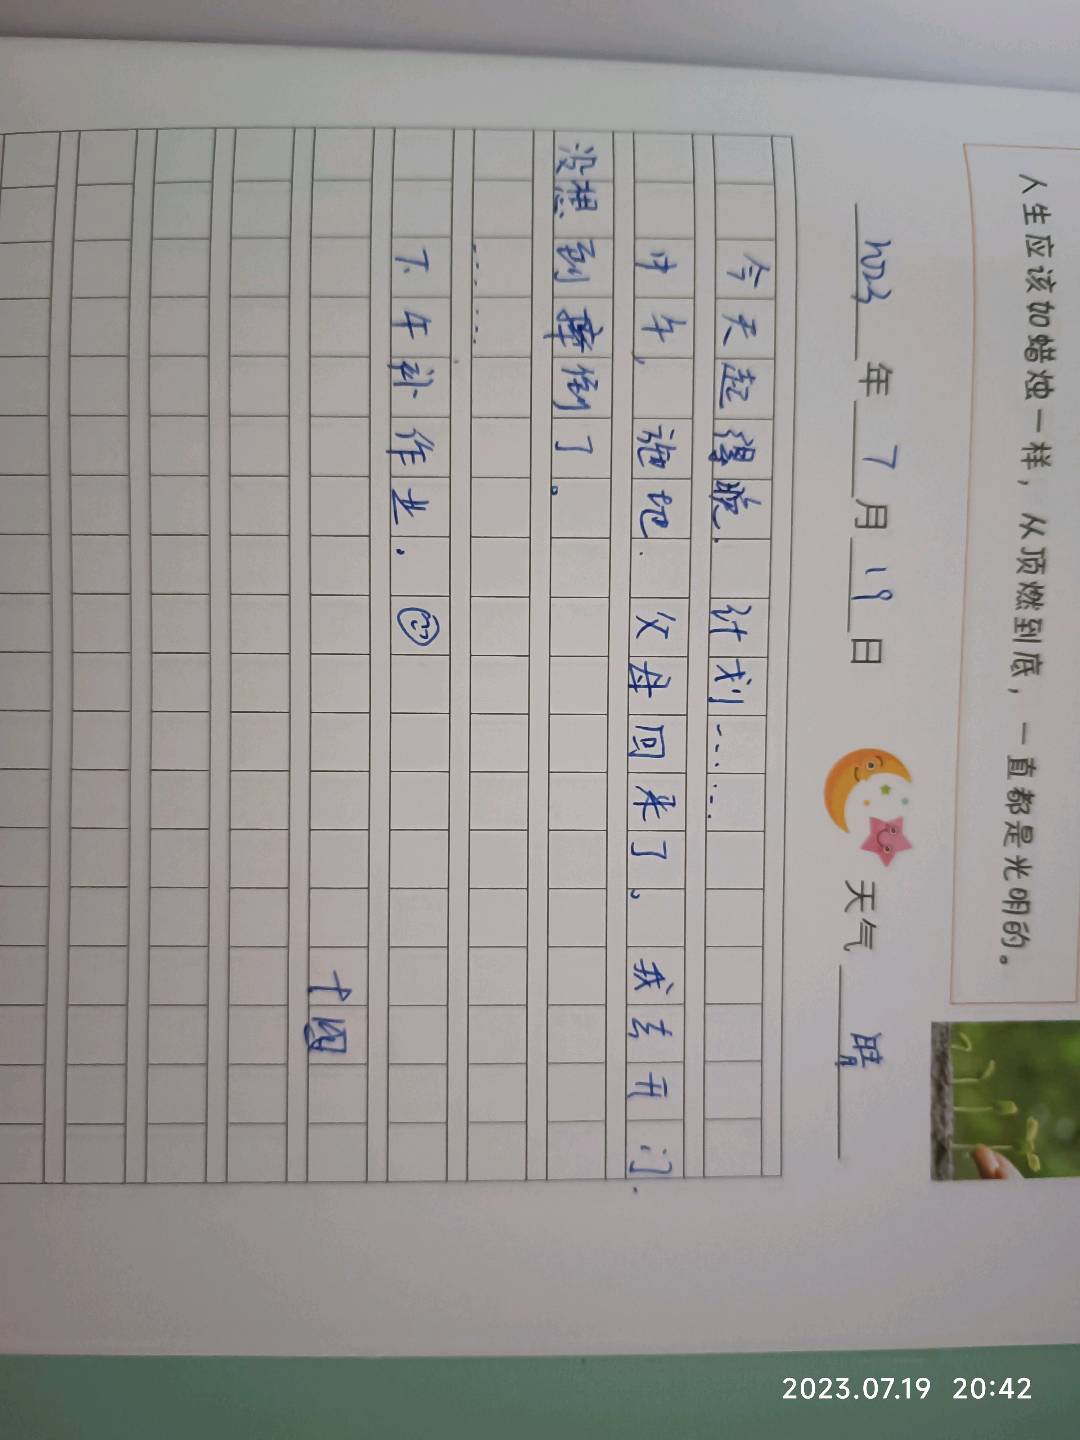 人生应该如蜡烛一样，从顶燃到底，一直都是光明的。
2023年7月19日 天气 晴
今天起得晚. 计划……
中午，拖地. 父母回来了。我去开门.
没想到摔倒了。
……
下午补作业.
2023.07.19 20:42